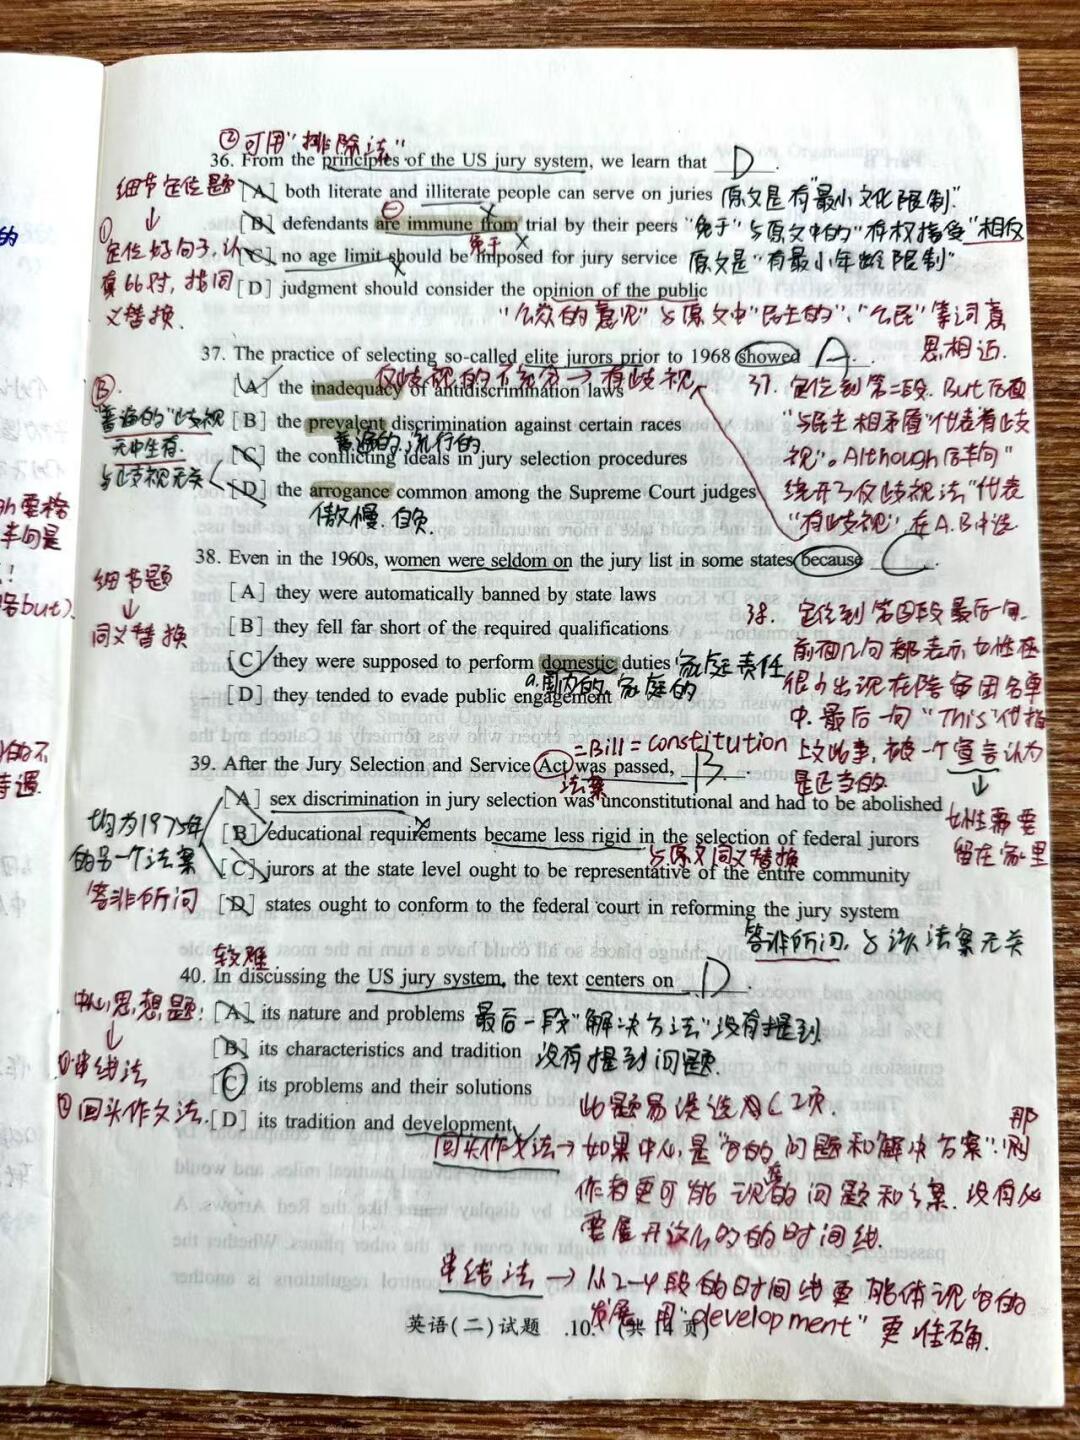 ②可用"排除法"
36. From the principles of the US jury system, we learn that D .
细节定位题
[A] both literate and illiterate people can serve on juries 原文是有"最小文化限制".
↓
①
[B] defendants are immune from trial by their peers "免于"与原文中的"有权接受"相反
免于
定位好句子,认
[C] no age limit should be imposed for jury service 原文是"有最小年龄限制"
真比对,找同
[D] judgment should consider the opinion of the public
义替换.
"公众的意见"与原文中"民主的"、"公民"等词意
思相近.
37. The practice of selecting so-called elite jurors prior to 1968 showed A .
反歧视的不充分→有歧视
[A] the inadequacy of antidiscrimination laws
37. 定位到第二段. But后面
B.
"普遍的"歧视
[B] the prevalent discrimination against certain races
"与民主相矛盾"代表有歧
无中生有.
普遍的,流行的
[C] the conflicting ideals in jury selection procedures
视"。Although后半句"
与歧视无关
[D] the arrogance common among the Supreme Court judges
绕开了反歧视法"代表
傲慢.自负
"有歧视".在A.B中选
38. Even in the 1960s, women were seldom on the jury list in some states because C .
细节题
[A] they were automatically banned by state laws
↓
[B] they fell far short of the required qualifications
38. 定位到第四段最后一句.
同义替换
前面几句都表示女性在
[C] they were supposed to perform domestic duties 家庭责任
很少出现在陪审团名单
a.国内的,家庭的
[D] they tended to evade public engagement
中.最后一句"This"代指
=Bill = constitution
39. After the Jury Selection and Service Act was passed, B .
上文此事,被一个宣言认为
法案
是正当的
↓
[A] sex discrimination in jury selection was unconstitutional and had to be abolished
女性需要
均为1975年
[B] educational requirements became less rigid in the selection of federal jurors
留在家里
的另一个法案
与原文同义替换
[C] jurors at the state level ought to be representative of the entire community
答非所问
[D] states ought to conform to the federal court in reforming the jury system
答非所问,与该法案无关
较难
40. In discussing the US jury system, the text centers on D .
中心思想题:
[A] its nature and problems 最后一段"解决方法"没有提到.
↓
[B] its characteristics and tradition 没有提到问题.
①串线法
[C] its problems and their solutions
②回头作文法.
[D] its tradition and development
此题易误选为C项.
回头作文法→如果中心是"它的问题和解决方案".那
则
作者更可能谈它的问题和方案.没有必
要展开这么多的的时间线.
串线法→从2-4段的时间线更能体现它的
发展,用"development"更准确.
英语(二)试题 .10. (共14页)